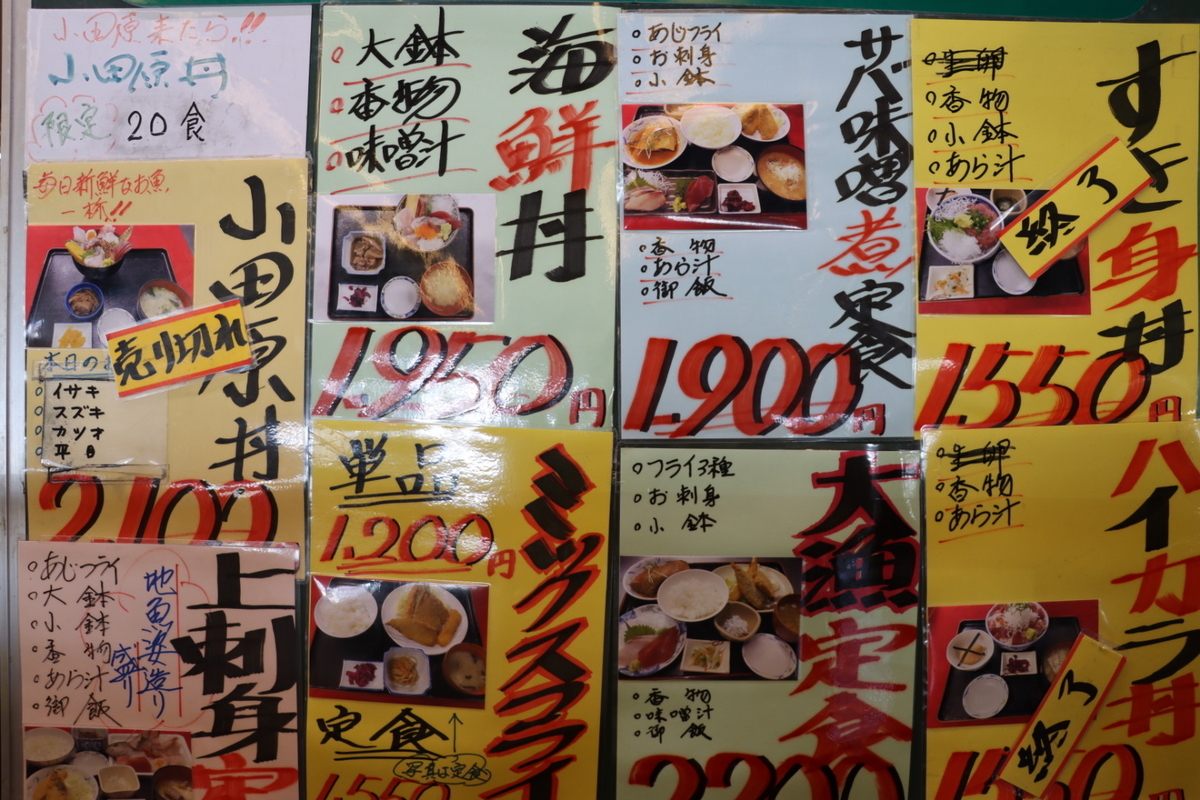 小田原来たら!!
小田原丼
限定 20食
毎日新鮮なお魚
一杯!!
小田原丼
売り切れ
本日のお
イサキ
スズキ
カツオ
平目
2,100
海鮮丼
大鉢
香物
味噌汁
1,950円
サバ味噌煮定食
あじフライ
お刺身
小鉢
香物
あら汁
御飯
1,900円
すき身丼
生卵
香物
小鉢
あら汁
終了
1,550円
上刺身定
地魚姿造り
盛り
あじフライ
大鉢
小鉢
香物
あら汁
御飯
ミックスフライ
単品
1,200円
定食
写真は定食
1,550
大漁定食
フライ3種
お刺身
小鉢
香物
味噌汁
御飯
2,200
ハイカラ丼
生卵
香物
あら汁
終了